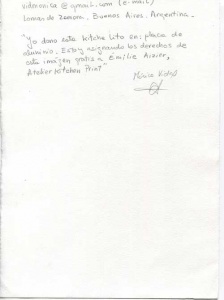 vidmonika@gmail.com (e-mail)
Lomas de Zamora. Buenos Aires. Argentina.
"Yo dono esta kitche Lito en: placa de
aluminio. Estoy asignando los derechos de
esta imágen gratis a Émilie Aizier,
Atelier Kitchen Print"